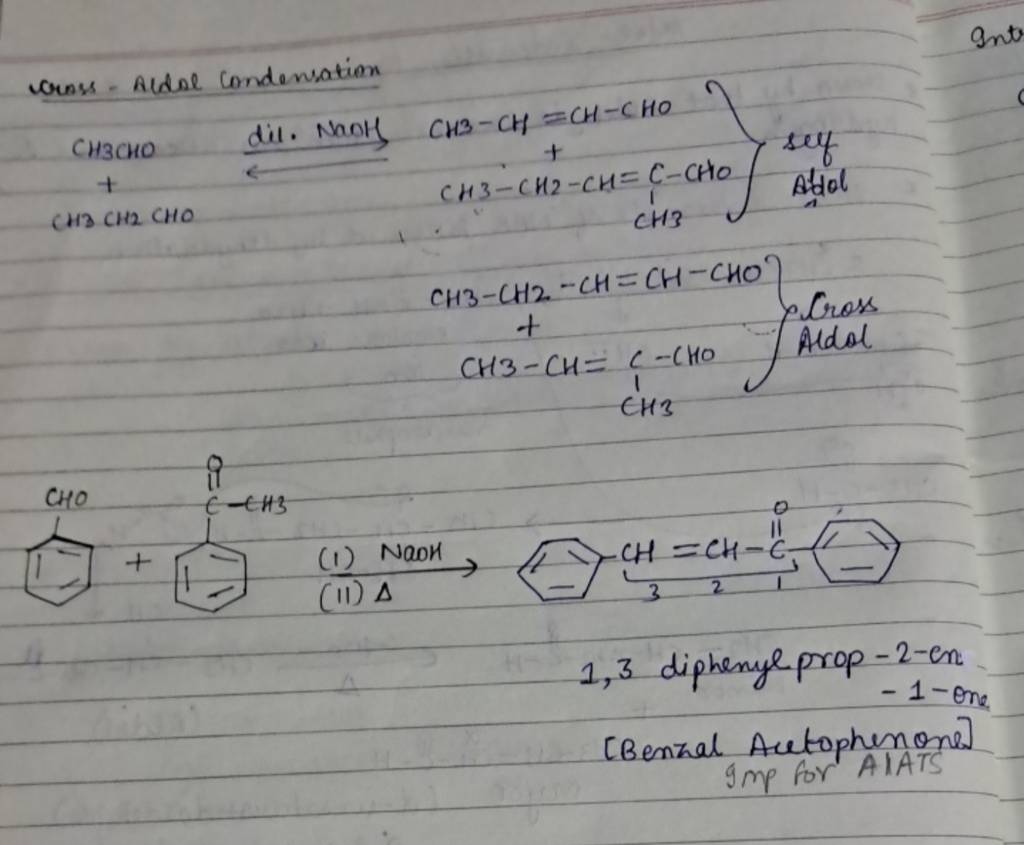 Cross - Aldol Condensation
CH3CHO
+
CH3 CH2 CHO
dil. NaOH
CH3-CH=CH-CHO
+
CH3-CH2-CH=C-CHO
CH3
self
Aldol
CH3-CH2-CH=CH-CHO
+
CH3-CH=C-CHO
CH3
Cross
Aldol
CHO
+
O
C-CH3
(I) NaOH
(II) Δ
O
CH=CH-C
3 2 1
1,3 diphenyl prop-2-en
-1-one
[Benzal Acetophenone]
Imp for AIATS
Int